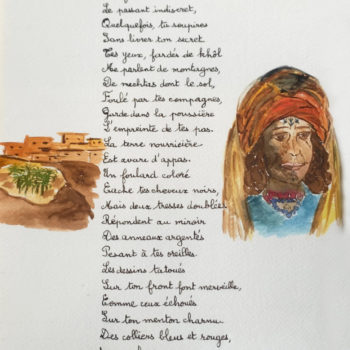 Le passant indiscret,
Quelquefois, tu soupires
Sans livrer ton secret.
Tes yeux, fardés de khôl
Me parlent de montagnes,
De mechtas dont le sol,
Foulé par tes compagnes,
Garde dans la poussière
L'empreinte de tes pas.
La terre nourricière
Est avare d'appas.
Un foulard coloré
Cache tes cheveux noirs,
Mais deux tresses doublées
Répondent au miroir
Des anneaux argentés
Pesant à tes oreilles.
Les dessins tatoués
Sur ton front font merveille,
Comme ceux échoués
Sur ton menton charmu.
Des colliers bleus et rouges,